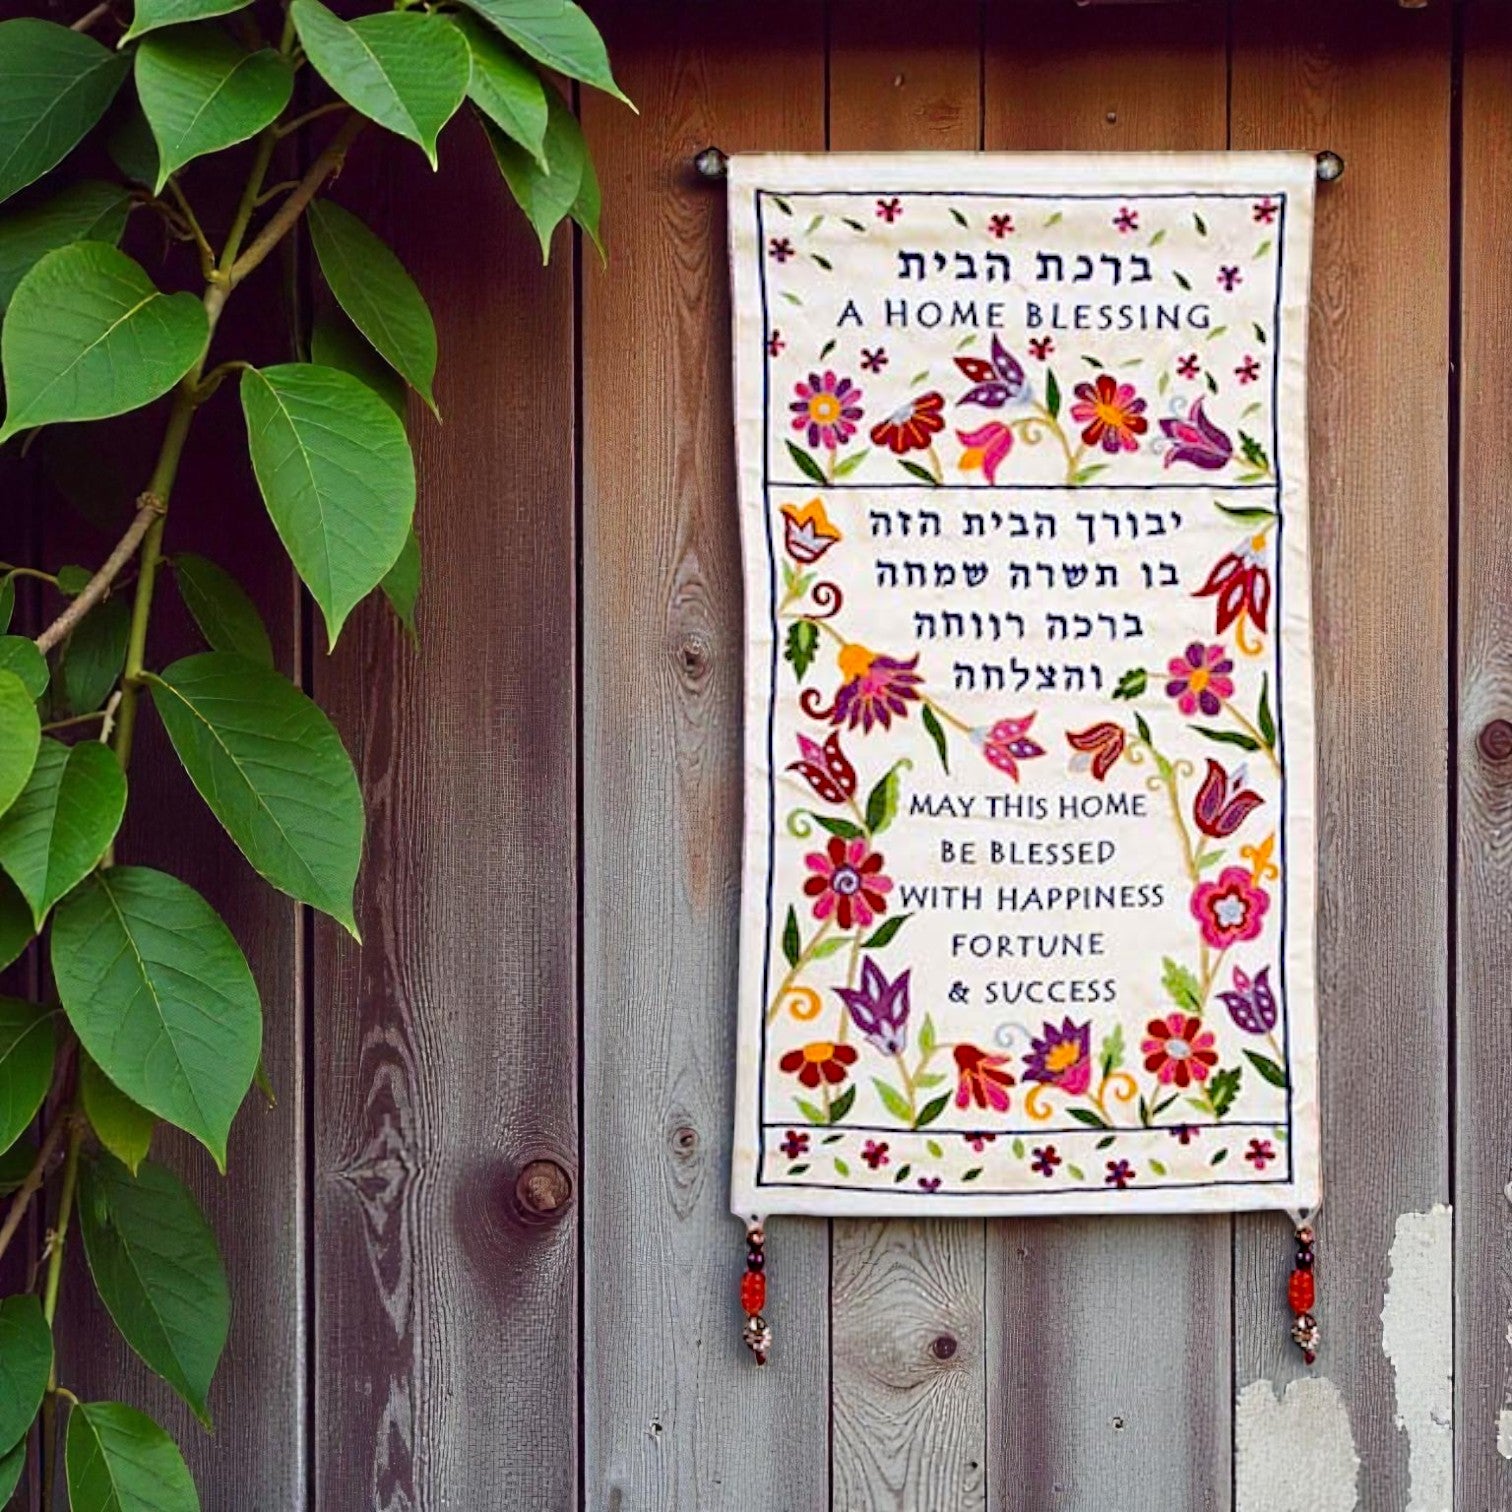 ברכת הבית
A HOME BLESSING
יבורך הבית הזה
בו תשרה שמחה
ברכה רווחה
והצלחה
MAY THIS HOME
BE BLESSED
WITH HAPPINESS
FORTUNE
& SUCCESS